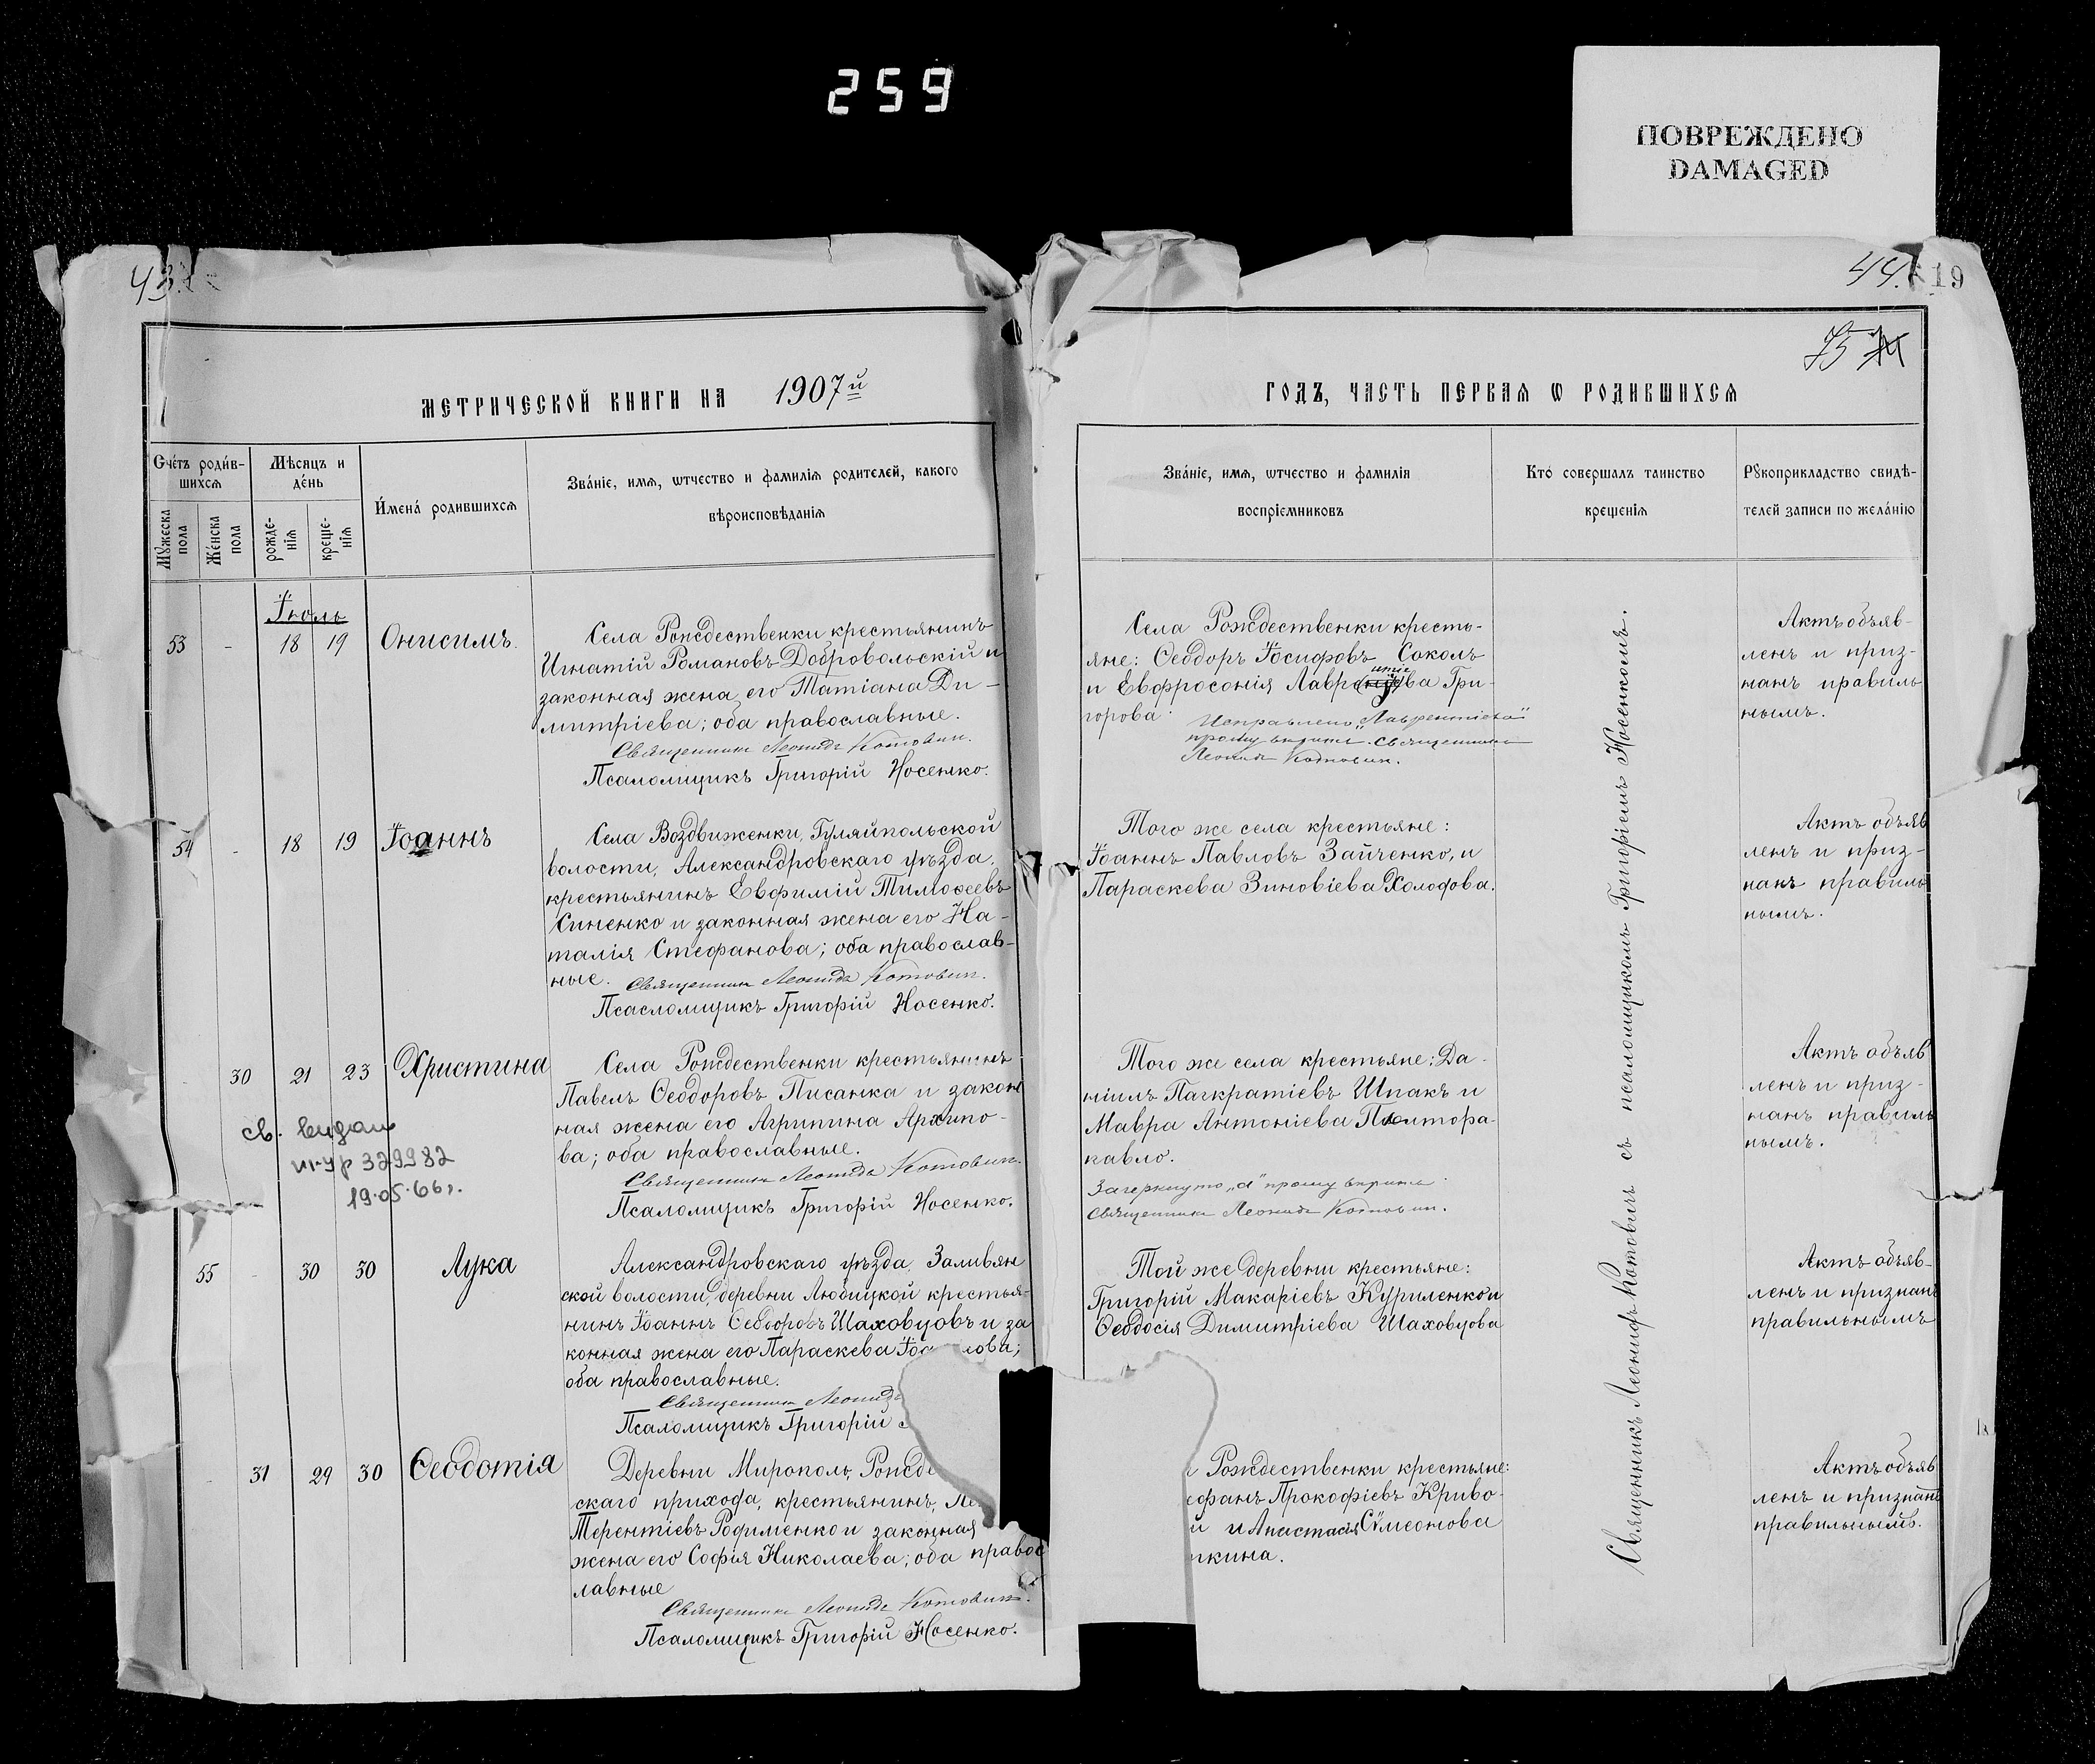 259
ПОВРЕЖДЕНО
DAMAGED
43.
44.
19
75
МЕТРИЧЕСКОЙ КНИГИ НА 1907й
ГОДЪ, ЧАСТЬ ПЕРВАЯ Ѡ РОДИВШИХСЯ
Счетъ родив-
шихся
Мужеска
пола
Женска
пола
Мѣсяцъ и
день
рожде-
нія
креще-
нія
Имена родившихся
Званіе, имя, ѡтчество и фамилія родителей, какого
вѣроисповѣданія
Званіе, имя, ѡтчество и фамилія
воспріемниковъ
Кто совершалъ таинство
крещенія
Рукоприкладство свидѣ-
телей записи по желанію
Іюль
53 - 18 19 Онисимъ.
Села Рождественки крестьянинъ
Игнатій Романовъ Добровольскій и
законная жена его Татіана Ди-
митріева; оба православные.
Священникъ Леонидъ Котович.
Псаломщикъ Григорій Носенко.
Села Рождественки кресть-
яне: Ѳеодоръ Іосифовъ Соколъ
и Евфросонія Лавре нтіе ва Гри-
горова.
Исправлено „Лаврентіева"
прошу вѣрить. Священникъ
Леонидъ Котович.
Актъ объяв-
ленъ и приз-
нанъ правиль
нымъ.
54 - 18 19 Іоаннъ
Села Воздвиженки, Гуляйпольской
волости, Александровскаго уѣзда,
крестьянинъ Евфимій Тимоѳеевъ
Синенко и законная жена его На-
талія Стефанова; оба православ-
ные. Священникъ Леонидъ Котович.
Псасломщикъ Григорій Носенко.
Того же села крестьяне:
Іоаннъ Павловъ Зайченко, и
Параскева Зиновіева Холодова.
Актъ объяв
ленъ и приз-
нанъ правиль
нымъ.
30 21 23 Христина
Села Рождественки крестьянинъ
Павелъ Ѳеодоровъ Писанка и закон
ная жена его Агрипина Архипо-
ва; оба православные.
Священникъ Леонидъ Котович.
Псаломщикъ Григорій Носенко.
св. выдано
329982
19.05.66г.
Того же села крестьяне: Да-
ніилъ Панкратіевъ Шпакъ и
Мавра Антоніева Полтора-
кавло.
Зачеркнуто „а" прошу вѣрить.
Священникъ Леонидъ Котович.
Актъ объяв
ленъ и приз-
нанъ правиль
нымъ.
55 - 30 30 Лука
Александровскаго уѣзда, Заливян
ской волости, деревни Любицкой крестья-
нинъ Іоаннъ Ѳеодоровъ Шаховцовъ и за
конная жена его Параскева Іоа лова;
оба православные.
Священникъ Леонидъ
Псаломщикъ Григорій
Той же деревни крестьяне:
Григорій Макаріевъ Куриленко и
Ѳеодосія Димитріева Шаховцова
Актъ объяв-
ленъ и признанъ
правильнымъ
31 29 30 Ѳеодотія
Деревни Мирополь, Рожде
скаго прихода, крестьянинъ, Ле
Терентіевъ Родименко и законная
жена его Софія Николаева; оба правос
лавные
Священникъ Леонидъ Котович.
Псаломщикъ Григорій Носенко.
Рождественки крестьяне:
ефанъ Прокофіевъ Криво-
й и Анастасія Сумеонова
ткина.
Актъ объяв
ленъ и признанъ
правильнымъ.
Священникъ Леонидъ Котовичъ съ псаломщикомъ Григоріемъ Носенкомъ.